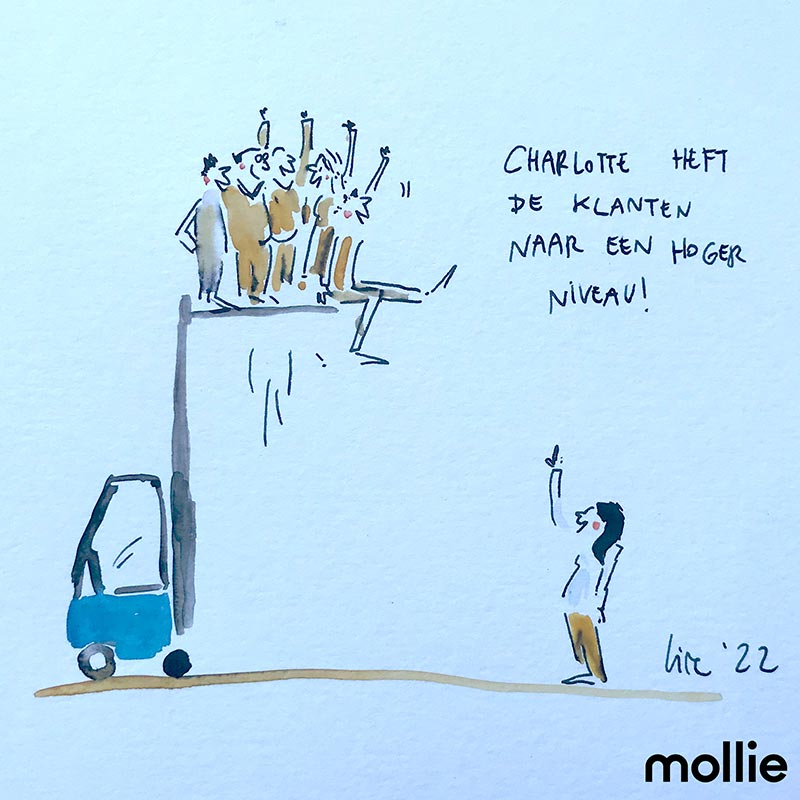 CHARLOTTE HEFT
DE KLANTEN
NAAR EEN HOGER
NIVEAU!
'22
mollie